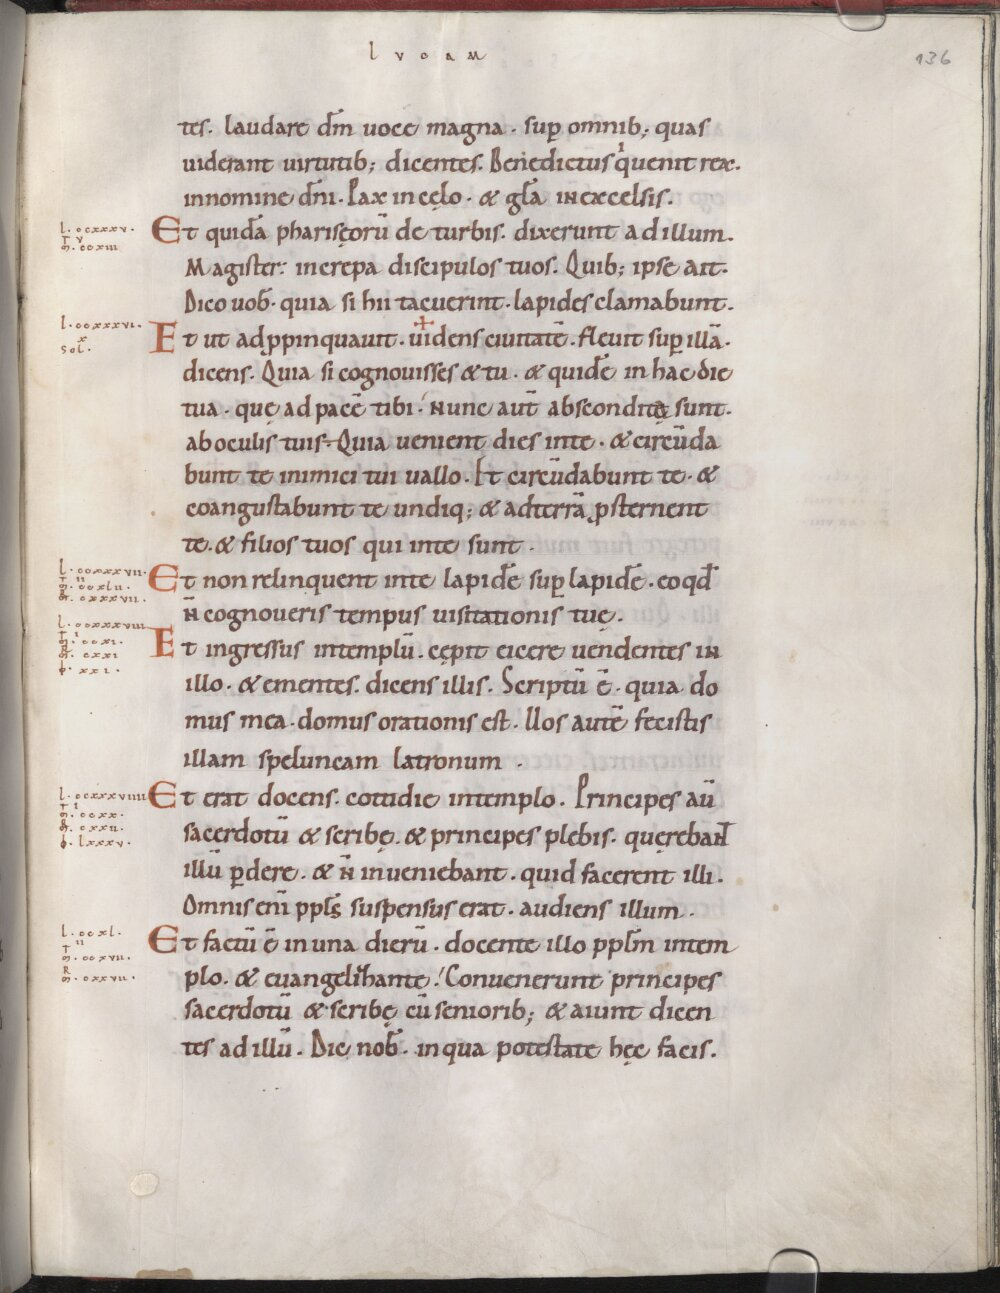 lvcam
136
tes. laudare dm̄ uoce magna. sup̱ omnib; quas
uiderant uirtutib; dicentes. Benedictus qͥ uenit rex.
in nomine dn̄i. Pax in cęlo. & gl̄a in excelsis.
l. ccxxxv.
Et quidā phariseorū de turbis. dixerunt ad illum.
Magister: increpa discipulos tuos. Quib; ipse ait.
Dico uob̄. quia si hii tacuerint. lapides clamabunt.
l. ccxxxvi.
x
sol.
Et ut adp̱pinquauit. uidens ciuitatē. fleuit sup̱ illā.
dicens. Quia si cognouisses & tu. & quidē in hac die
tua. quę ad pacē tibi. Nunc aut̄ abscondita sunt.
ab oculis tuis. Quia uenient dies in te. & circūda
bunt te inimici tui uallo. Et circūdabunt te. &
coangustabunt te undiq; & ad terrā p̱sternent
te. & filios tuos qui in te sunt.
l. ccxxxvii.
Et non relinquent in te lapidē sup̱ lapidē. eo qd̄
n̄ cognoueris tempus uisitationis tuę.
l. ccxxxviii
Et ingressus in templū. cępit eicere uendentes in
illo. & ementes. dicens illis. Scriptū ē. quia do
mus mea. domus orationis est. Uos autē fecistis
illam speluncam latronum.
l. ccxxxviiii
Et erat docens. cottidie in templo. Principes aū
sacerdotū & scribę. & principes plebis. querebant
illū p̱dere. & n̄ inueniebant. quid facerent illi.
Omnis eni ppls̄ suspensus erat. audiens illum.
l. ccxl.
Et factū ē in una dierū. docente illo pplm̄ in tem
plo. & euangelizante! Conuenerunt principes
sacerdotū & scribę cū seniorib; & aiunt dicen
tes ad illū. Dic nob̄. in qua potestate hęc facis.